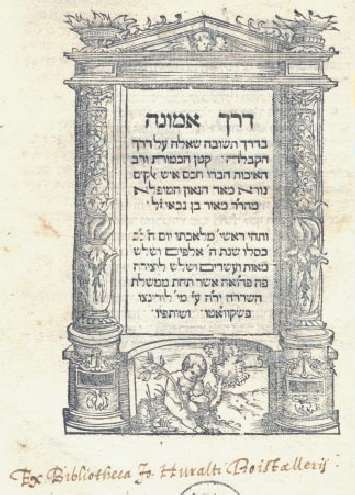 דרך אמונה
בדרך תשובה שאלה על דרך
הקבלה קטן הכמות ורב
האיכות חברו חכם איש אלקים
נורא מאד הגאון המופלא
מהר״ר מאיר בן גבאי ז״ל
ותהי ראשי׳ מלאכתו יום ה׳
כסלו שנת ה׳ אלפים ושלש
מאות ועשרים ושלש ליצירה
פה פדואה אשר תחת ממשלת
השררה יר״ה ע״י מי׳ לורינצו
פשקוואטו ושותפיו
Ex Bibliotheca Jo. Huralti Boistallerii